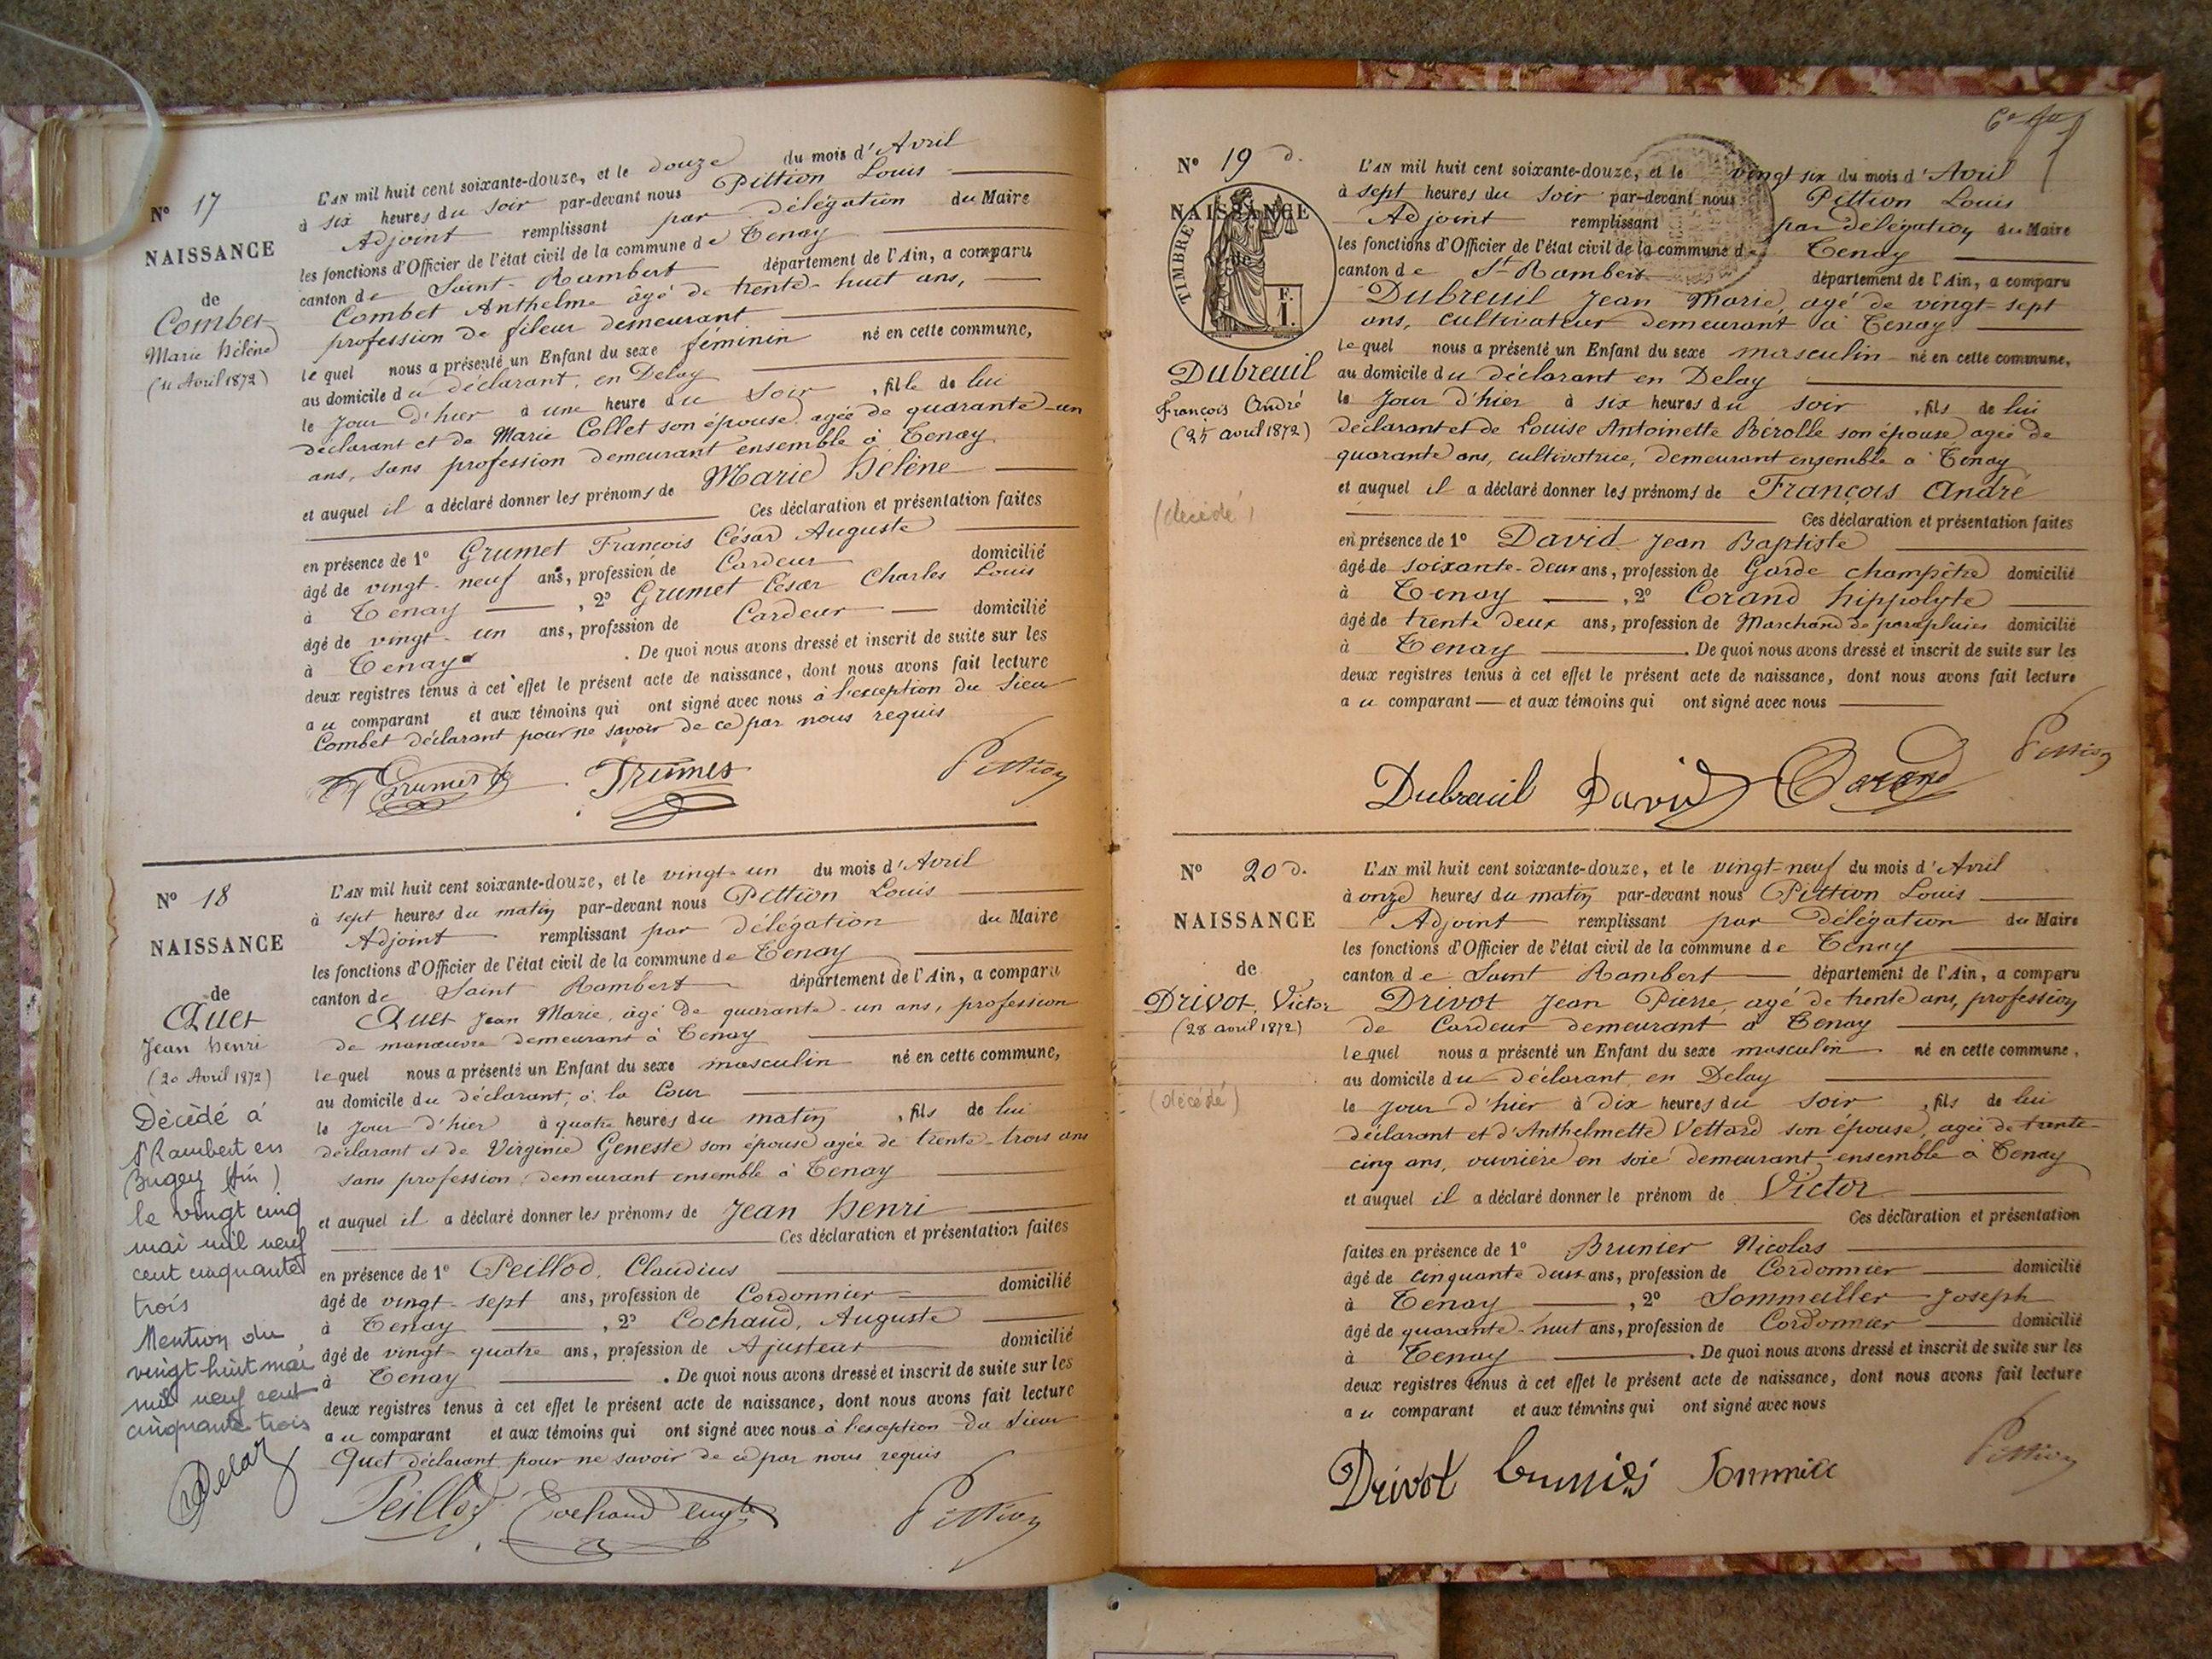 N° 17
NAISSANCE
de
Combet
Marie Hélène
(11 Avril 1872)
L'AN mil huit cent soixante-douze, et le douze du mois d'Avril
à six heures du soir par-devant nous Pittion Louis
Adjoint remplissant par délégation du Maire
les fonctions d'Officier de l'état civil de la commune de Tenay
canton de Saint-Rambert département de l'Ain, a comparu
Combet Anthelme âgé de trente-huit ans,
profession de fileur demeurant
lequel nous a présenté un Enfant du sexe féminin né en cette commune,
au domicile du déclarant, en Delay
le jour d'hier à une heure du soir, fille de lui
déclarant et de Marie Collet son épouse agée de quarante-un
ans, sans profession demeurant ensemble à Tenay
et auquel il a déclaré donner les prénoms de Marie Hélène
Ces déclaration et présentation faites
en présence de 1° Grumet François César Auguste
âgé de vingt-neuf ans, profession de Cardeur domicilié
à Tenay, 2° Grumet César Charles Louis
âgé de vingt-un ans, profession de Cardeur domicilié
à Tenay. De quoi nous avons dressé et inscrit de suite sur les
deux registres tenus à cet effet le présent acte de naissance, dont nous avons fait lecture
au comparant et aux témoins qui ont signé avec nous à l'exception du sieur
Combet déclarant pour ne savoir de ce par nous requis
Grumet Pittion
N° 18
NAISSANCE
de
Quet
Jean Henri
(20 Avril 1872)
Décédé à
St Rambert en
Bugey (Ain)
le vingt cinq
mai mil neuf
cent cinquante
trois
Mention du
vingt-huit mai
mil neuf cent
cinquante trois
L'AN mil huit cent soixante-douze, et le vingt-un du mois d'Avril
à sept heures du matin par-devant nous Pittion Louis
Adjoint remplissant par délégation du Maire
les fonctions d'Officier de l'état civil de la commune de Tenay
canton de Saint Rambert département de l'Ain, a comparu
Quet Jean Marie, âgé de quarante-un ans, profession
de manœuvre demeurant à Tenay
lequel nous a présenté un Enfant du sexe masculin né en cette commune,
au domicile du déclarant, à la Cour
le jour d'hier à quatre heures du matin, fils de lui
déclarant et de Virginie Geneste son épouse agée de trente-trois ans
sans profession, demeurant ensemble à Tenay
et auquel il a déclaré donner les prénoms de Jean Henri
Ces déclaration et présentation faites
en présence de 1° Peillod, Claudius
âgé de vingt-sept ans, profession de Cordonnier domicilié
à Tenay, 2° Cochaud, Auguste
âgé de vingt-quatre ans, profession de Ajusteur domicilié
à Tenay. De quoi nous avons dressé et inscrit de suite sur les
deux registres tenus à cet effet le présent acte de naissance, dont nous avons fait lecture
au comparant et aux témoins qui ont signé avec nous à l'exception du sieur
Quet déclarant pour ne savoir de ce par nous requis
Peillod Cochaud Pittion
N° 19 d.
NAISSANCE
de
TIMBRE
F.
1.
Dubreuil
François André
(25 avril 1872)
(décédé)
L'AN mil huit cent soixante-douze, et le vingt six du mois d'Avril
à sept heures du soir par-devant nous Pittion Louis
Adjoint remplissant par délégation du Maire
les fonctions d'Officier de l'état civil de la commune de Tenay
canton de St Rambert département de l'Ain, a comparu
Dubreuil Jean Marie, agé de vingt-sept
ans, cultivateur demeurant à Tenay
lequel nous a présenté un Enfant du sexe masculin né en cette commune,
au domicile du déclarant en Delay
le jour d'hier à six heures du soir, fils de lui
déclarant et de Louise Antoinette Bérolle son épouse agée de
quarante ans, cultivatrice, demeurant ensemble à Tenay
et auquel il a déclaré donner les prénoms de François André
Ces déclaration et présentation faites
en présence de 1° David Jean Baptiste
âgé de soixante-deux ans, profession de Garde champêtre domicilié
à Tenay, 2° Corand Hippolyte
âgé de trente deux ans, profession de Marchand de parapluies domicilié
à Tenay. De quoi nous avons dressé et inscrit de suite sur les
deux registres tenus à cet effet le présent acte de naissance, dont nous avons fait lecture
au comparant — et aux témoins qui ont signé avec nous
Dubreuil David Corand Pittion
N° 20 d.
NAISSANCE
de
Drivot, Victor
(28 avril 1872)
(décédé)
L'AN mil huit cent soixante-douze, et le vingt-neuf du mois d'Avril
à onze heures du matin par-devant nous Pittion Louis
Adjoint remplissant par délégation du Maire
les fonctions d'Officier de l'état civil de la commune de Tenay
canton de Saint Rambert département de l'Ain, a comparu
Drivot Jean Pierre, agé de trente ans, profession
de Cardeur demeurant à Tenay
lequel nous a présenté un Enfant du sexe masculin né en cette commune,
au domicile du déclarant, en Delay
le jour d'hier à dix heures du soir, fils de lui
déclarant et d'Anthelmette Vettard son épouse, agée de trente-
cinq ans, ouvrière en soie demeurant ensemble à Tenay
et auquel il a déclaré donner le prénom de Victor
Ces déclaration et présentation
faites en présence de 1° Brunier Nicolas
âgé de cinquante deux ans, profession de Cordonnier domicilié
à Tenay, 2° Sommeiller Joseph
âgé de quarante-huit ans, profession de Cordonnier domicilié
à Tenay. De quoi nous avons dressé et inscrit de suite sur les
deux registres tenus à cet effet le présent acte de naissance, dont nous avons fait lecture
au comparant et aux témoins qui ont signé avec nous
Drivot Pittion